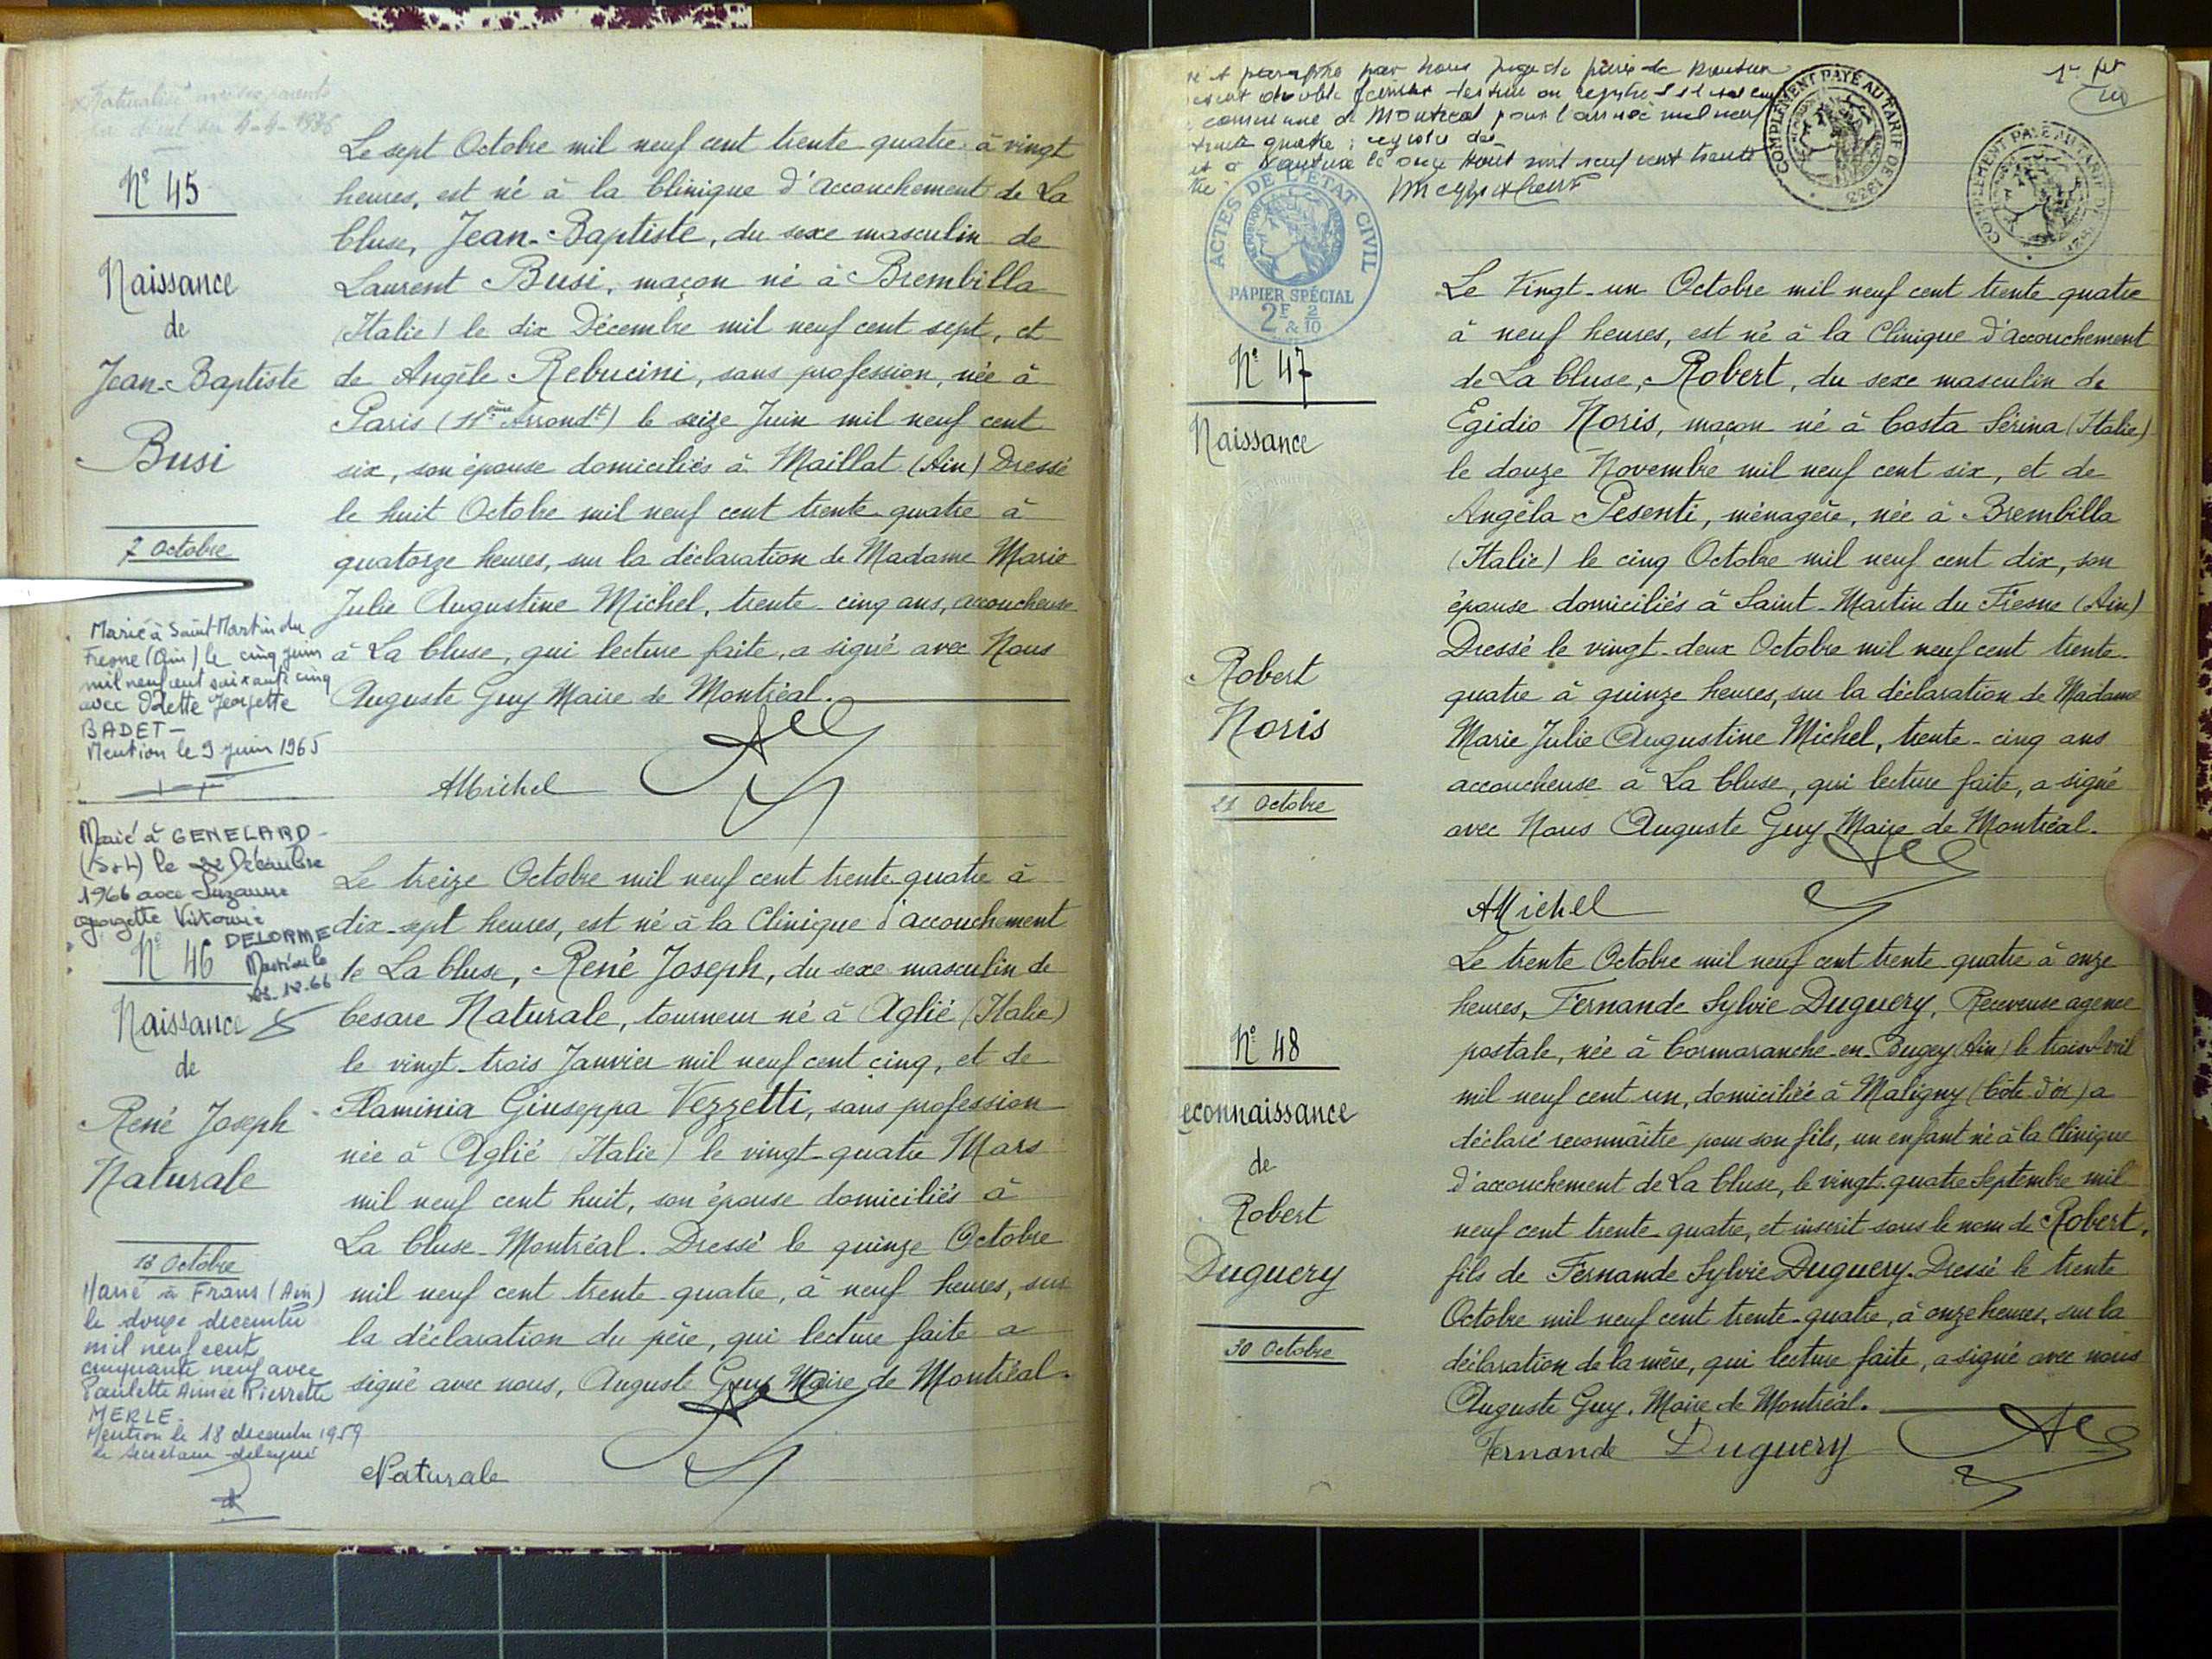 Naturalisé avec ses parents
4-4-1936
N° 45
Naissance
de
Jean-Baptiste
Busi
7 Octobre
Marié à Saint-Martin du
Fresne (Ain) le cinq juin
mil neuf cent soixante cinq
avec Odette Georgette
BADET -
Mention le 9 juin 1965
Le sept Octobre mil neuf cent trente quatre à vingt
heures, est né à la Clinique d'Accouchement de La
Cluse, Jean-Baptiste, du sexe masculin de
Laurent Busi, maçon né à Brembilla
(Italie) le dix Décembre mil neuf cent sept, et
de Angèle Rebucini, sans profession, née à
Paris (11ème Arrondt) le seize Juin mil neuf cent
six, son épouse domiciliés à Maillat (Ain) Dressé
le huit Octobre mil neuf cent trente quatre à
quatorze heures, sur la déclaration de Madame Marie
Julie Augustine Michel, trente cinq ans, accoucheuse
à La Cluse, qui lecture faite, a signé avec Nous
Auguste Guy Maire de Montréal.
AMichel
Marié à GENELARD -
(S&L) le 22 Décembre
1966 avec Suzanne
Georgette Victorine
DELORME
N° 46
Naissance
de
René Joseph
Naturale
13 Octobre
Marié à Frans (Ain)
le douze decembre
mil neuf cent
cinquante neuf avec
Paulette Aimée Pierrette
MERLE.
Mention le 18 decembre 1959
le secrétaire délégué
Le treize Octobre mil neuf cent trente quatre à
dix-sept heures, est né à la Clinique d'accouchement
de La Cluse, René Joseph, du sexe masculin de
Cesare Naturale, tourneur né à Aglié (Italie)
le vingt-trois Janvier mil neuf cent cinq, et de
Flaminia Giuseppa Vezzetti, sans profession
née à Aglié (Italie) le vingt-quatre Mars
mil neuf cent huit, son épouse domiciliés à
La Cluse-Montréal. Dressé le quinze Octobre
mil neuf cent trente quatre, à neuf heures, sur
la déclaration du père, qui lecture faite a
signé avec nous, Auguste Guy Maire de Montréal.
Naturale
et paraphé par nous juge de paix de
commune de Montréal pour l'année mil neuf
trente quatre
COMPLÉMENT PAYÉ AU TARIF DE
COMPLÉMENT PAYÉ AU TARIF DE
ACTES DE L'ÉTAT CIVIL
PAPIER SPÉCIAL
2F & 2/10
N° 47
Naissance
Robert
Noris
21 Octobre
Le Vingt-un Octobre mil neuf cent trente-quatre
à neuf heures, est né à la Clinique d'accouchement
de La Cluse, Robert, du sexe masculin de
Egidio Noris, maçon né à Costa Sérina (Italie)
le douze Novembre mil neuf cent six, et de
Angéla Pesenti, ménagère, née à Brembilla
(Italie) le cinq Octobre mil neuf cent dix, son
épouse domiciliés à Saint-Martin du Fresne (Ain)
Dressé le vingt-deux Octobre mil neuf cent trente-
quatre à quinze heures, sur la déclaration de Madame
Marie Julie Augustine Michel, trente-cinq ans
accoucheuse à La Cluse, qui lecture faite, a signé
avec Nous Auguste Guy Maire de Montréal.
AMichel
N° 48
econnaissance
de
Robert
Duguery
30 Octobre
Le trente Octobre mil neuf cent trente quatre à onze
heures, Fernande Sylvie Duguery, Receveuse agence
postale, née à Cormaranche-en-Bugey (Ain) le trois Avril
mil neuf cent un, domiciliée à Maligny (Côte d'or) a
déclaré reconnaître pour son fils, un enfant né à la Clinique
d'accouchement de La Cluse, le vingt-quatre Septembre mil
neuf cent trente quatre, et inscrit sous le nom de Robert,
fils de Fernande Sylvie Duguery. Dressé le trente
Octobre mil neuf cent trente-quatre, à onze heures, sur la
déclaration de la mère, qui lecture faite, a signé avec nous
Auguste Guy, Maire de Montréal.
Fernande Duguery